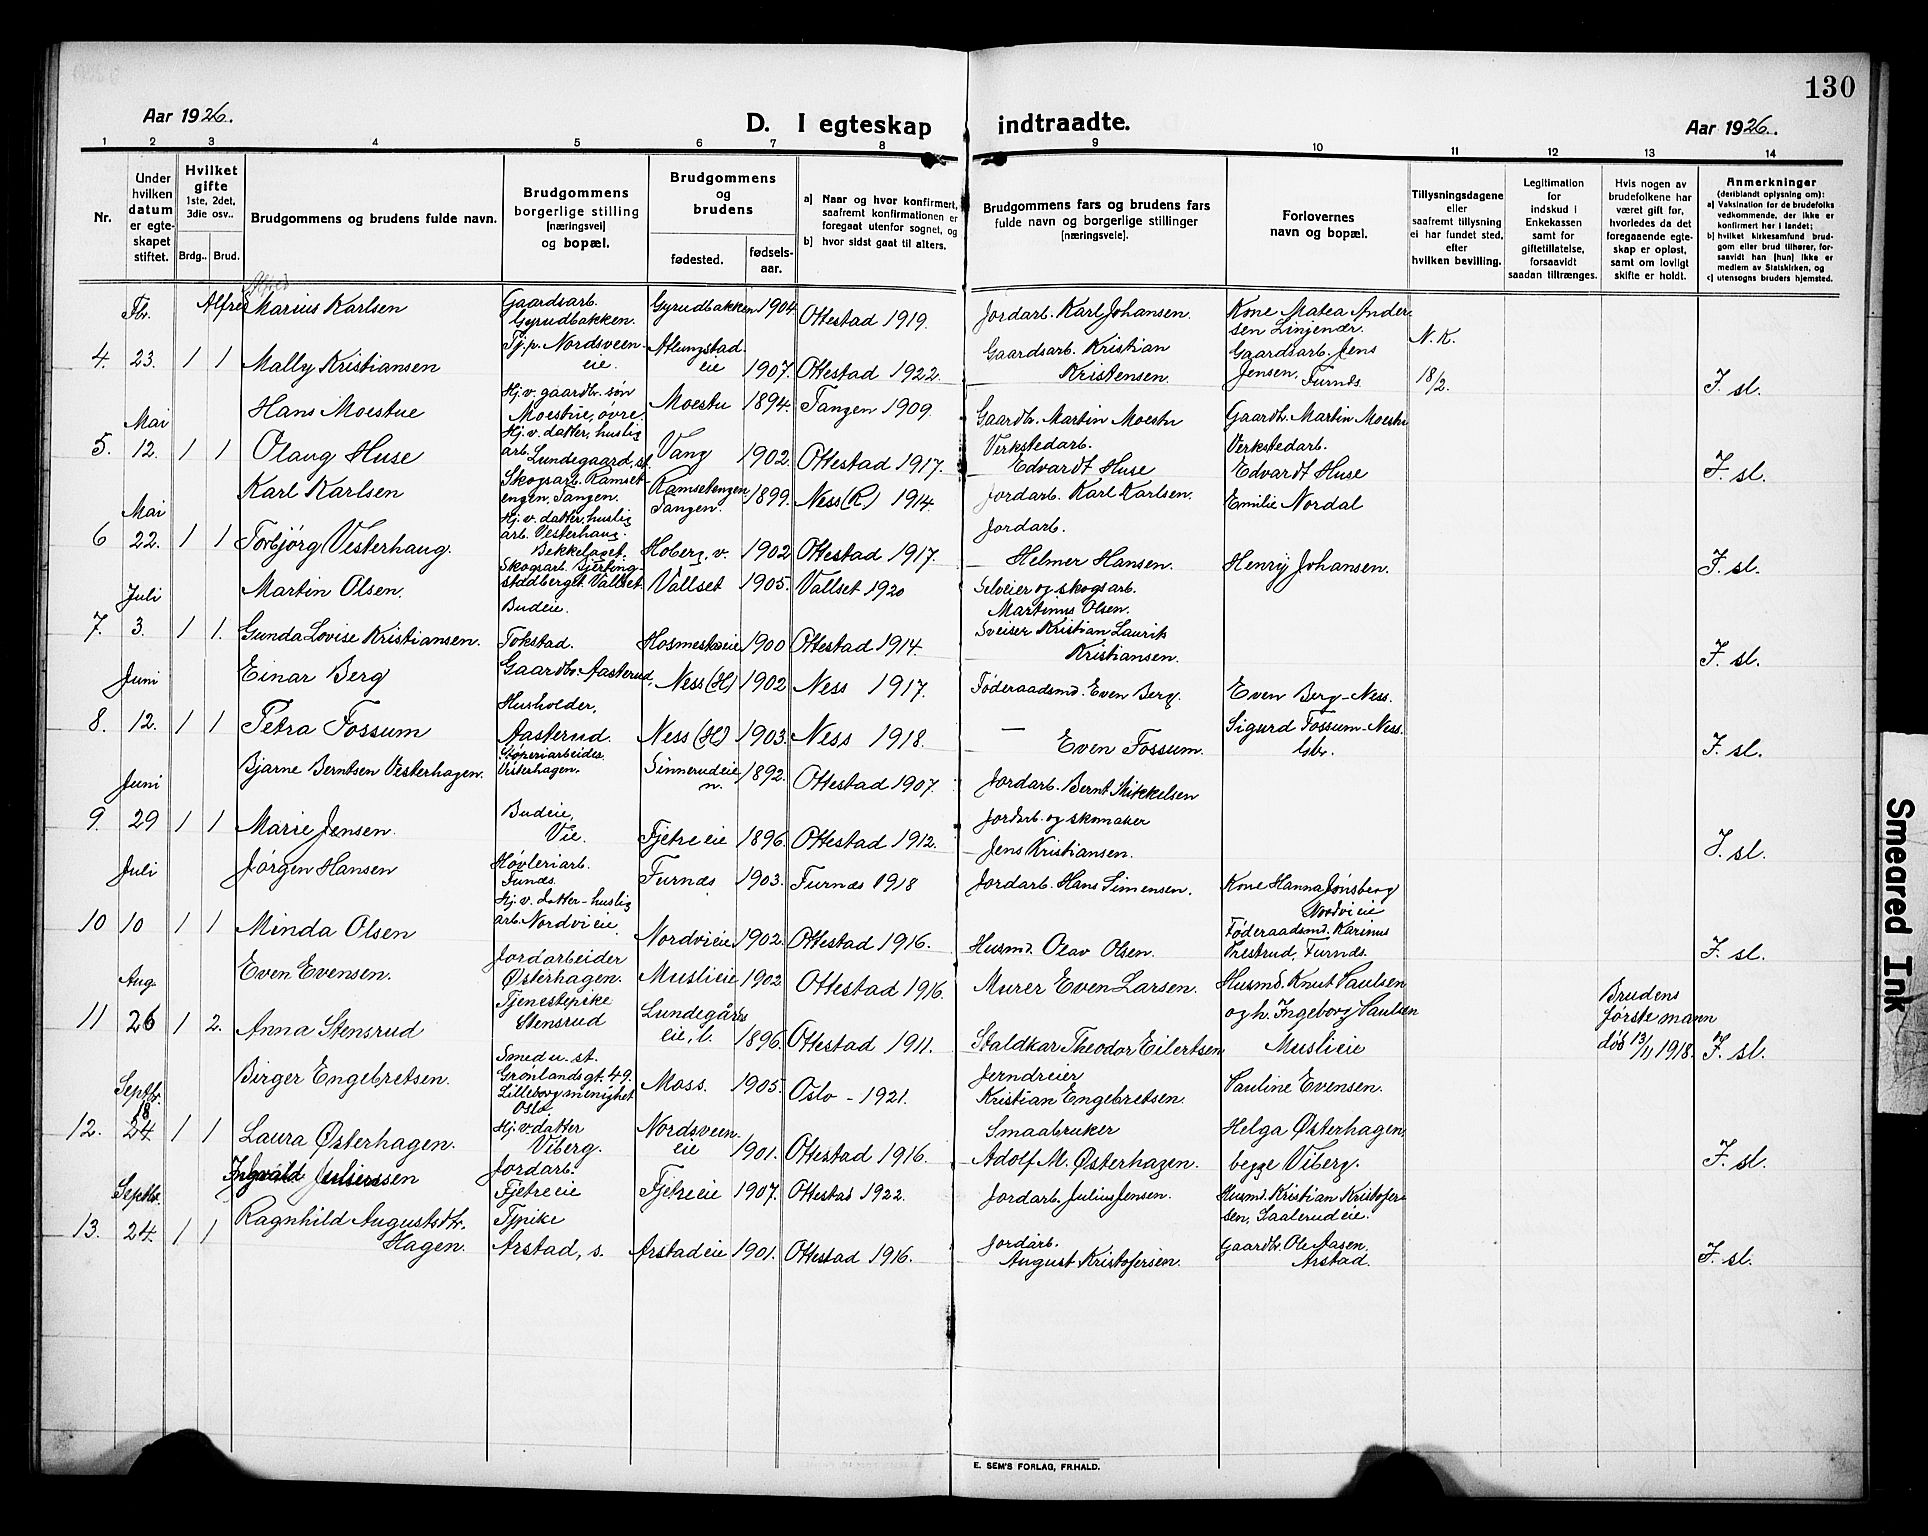 130
Aar 1926.
D. I egteskap indtraadte.
Aar 1926.
1 2 3 4 5 6 7 8 9 10 11 12 13 14
Nr.
Under hvilken datum er egteskapet stiftet.
Hvilket gifte 1ste, 2det, 3die osv..
Brdg.. Brud.
Brudgommens og brudens fulde navn.
Brudgommens borgerlige stilling (næringsvei) og bopæl.
Brudgommens og brudens
fødested.
fødselsaar.
a) Naar og hvor konfirmert, saafremt konfirmationen er foregaat utenfor sognet, og
b) hvor sidst gaat til alters.
Brudgommens fars og brudens fars fulde navn og borgerlige stillinger (næringsveie).
Forlovernes navn og bopæl.
Tillysningsdagene eller saafremt tillysning ei har fundet sted, efter hvilken bevilling.
Legitimation for indskud i Enkekassen samt for giftetillatelse, forsaavidt saadan tiltrænges.
Hvis nogen av brudefolkene har været gift før, hvorledes da det foregaaende egteskap er opløst, samt om lovligt skifte er holdt.
Anmerkninger (deriblandt oplysning om): a) Vaksination for de brudefolks vedkommende, der ikke er konfirmert her i landet; b) hvilket kirkesamfund brudgom eller brud tilhører, forsaavidt han (hun) ikke er medlem av Statskirken, og c) utensogns bruders hjemsted.
Fbr. Alfred Marius Karlsen Gaardsarb. Gyrudbakken. Gyrudbakken 1904 Ottestad 1919. Jordarb. Karl Johansen. Kone Matea Andersen Linjenær. N. K.
4. 23. 1 1 Mally Kristiansen Tj.p. Nordsveeneie. Atlungstadeie 1907. Ottestad 1922. Gaardsarb. Kristian Kristensen. Gaardsarb. Jens Jensen, Furnæs. 18/2. F. sl.
Mai Hans Moestue Hj. v. gaardbr. søn Moestue, øvre. Moestu 1894. Tangen 1909. Gaardbr. Martin Moestu Gaardbr. Martin Moestu
5. 12. 1 1 Olaug Huse Hj. v. datter, huslig arb. Lundegaard, st. Vang 1902. Ottestad 1917. Verkstedarb. Edvardt Huse Verkstedarb. Edvardt Huse F. sl.
Mai Karl Karlsen Skogsarb. Ramsetengen, Tangen. Ramsetengen Tangen. 1899. Ness (R.) 1914. Jordarb. Karl Karlsen. Emilie Nordal
6 22. 1 1 Torbjörg Vesterhaug. Hj. v. datter, huslig arb. Vesterhaug. Bekkelaget. Hoberg. v. 1902 Ottestad 1917. Jordarb. Helmer Hansen. Henry Johansen. F. sl.
Juli Martin Olsen. Skogsarb. Vallset. Vallset 1905. Vallset 1920 Selveier og skogsarb. Martinus Olsen.
7. 3. 1 1. Gunda Lovise Kristiansen. Budeie. Tokstad. Hosmestadeie 1900 Ottestad 1914. Sveiser Kristian Laurits Kristiansen. F. sl.
Juni Einar Berg Gaardbr. Aasterud. Ness (H) 1902 Ness 1917. Føderaadsmd. Even Berg. Even Berg - Ness.
8. 12. 1 1 Petra Fossum Husholder, Aasterud. Ness (H) 1903. Ness 1918. — Even Fossum. Sigurd Fossum - Ness. Gbr. F. sl.
Juni Bjarne Berntsen Vesterhagen. Støperiarbeider. Vesterhagen. Sinnerudeie n. 1892. Ottestad 1907. Jordarb. Bernt Mikkelsen
9. 29 1 1 Marie Jensen. Budeie, Vie. Fjetreeie 1896. Ottestad 1912. Jordarb. og skomaker Jens Kristiansen. F. sl.
Juli Jørgen Hansen Høvleriarb. Funæs. Furnæs 1903. Furnæs 1918 Jordarb. Hans Simensen. Kone Hanna Jønsberg Nordvieie
10 10 1 1 Minda Olsen Hj. v. datter - huslig arb. Nordvieie. Nordvieie 1902. Ottestad 1916. Husmd. Olav Olsen. Føderaadsmd. Karinus Frestrud, Furnæs. F. sl.
Aug. Even Evensen. Jordarbeider Østerhagen. Muslieie 1902 Ottestad 1916. Murer Even Larsen. Husmd. Knut Paulsen
11 26 1 2. Anna Stensrud Tjenestepike Stensrud Lundegårdseie, l. 1896. Ottestad 1911. Staldkar Theodor Eilertsen og h. Ingeborg Paulsen Muslieie Brudens første mann død 13/11 1918. F. sl.
Septbr. Birger Engebretsen. Smed u. st. Grønlandsgt. 49. Lilleborg menighet Oslo. Moss. 1905. Oslo - 1921. Jerndreier Kristian Engebretsen. Pauline Evensen.
12. 18 24. 1 1 Laura Østerhagen. Hj. v. datter Viberg. Nordsveeneie 1901. Ottestad 1916. Smaabruker Adolf M. Østerhagen. Helga Østerhagen begge Viberg. F. sl.
Septbr. Ingvald Juliussen Jordarb. Fjetreeie Fjetreeie 1907. Ottestad 1922. Jordarb. Julius Jensen. Husmd. Kristian Kristofersen, Saalerudeie.
13. 24. 1 1 Ragnhild Augustsdtr. Hagen. Tjpike Arstad, s. Arstadeie 1901. Ottestad 1916. Jordarb. August Kristofersen. Gaardbr. Ole Aasen. Arstad. F. sl.
E. SEM'S FORLAG, FR.HALD.
Smeared Ink